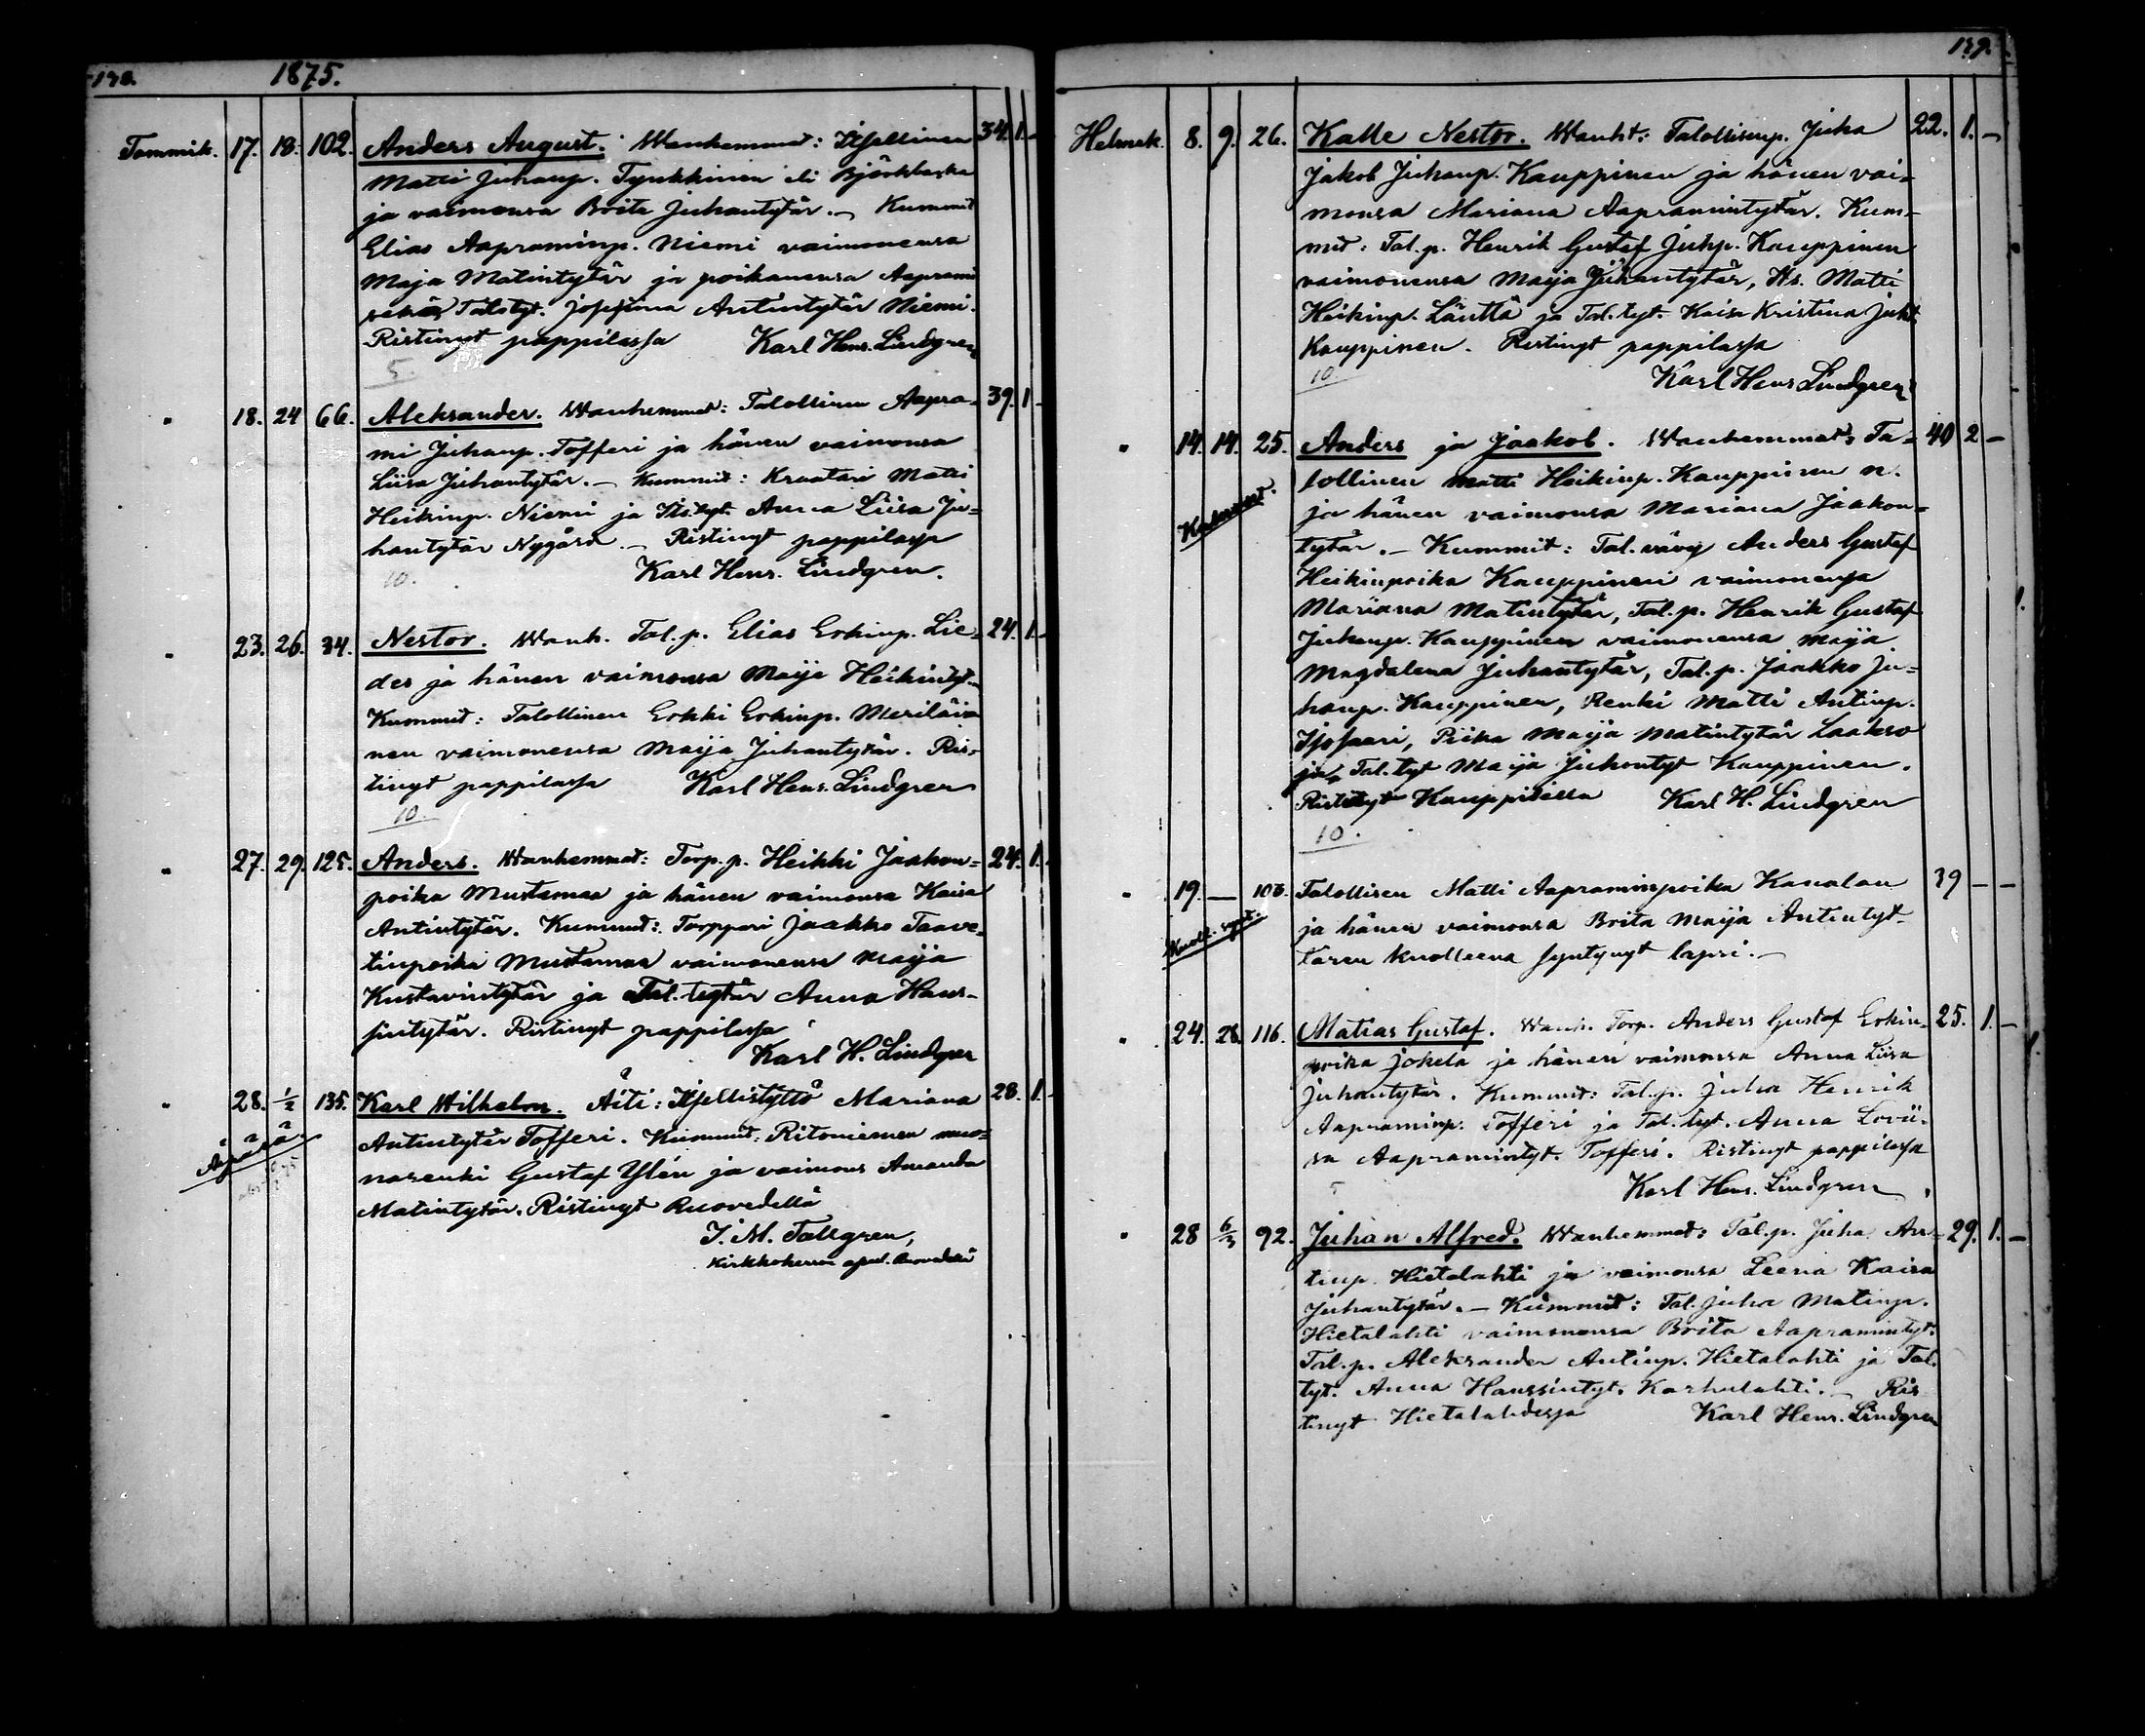 138. 1875.
Tammik. 17. 18. 102. Anders August. Wanhemmat: Itsellinen 34. 1. -
Matti Juhanp. Tynkkinen eli Björkbacka
ja vaimonsa Brita Juhantytär. – Kummit
Elias Aapraminp. Niemi vaimonensa
Maja Matintytär ja poikanensa Aaprami
sekä Tal.tyt. Josefina Antintytär Niemi.
Ristinyt pappilassa Karl Henr. Lindgren
5.
" 18. 24 66. Aleksander. Wanhemmat: Talollinen Aapra- 39. 1 -
mi Juhanp. Tofferi ja hänen vaimonsa
Liisa Juhantytär. – Kummit: Kraatari Matti
Heikinp. Niemi ja Its.tyt. Anna Liisa Ju-
hantytär Nygård. – Ristinyt pappilassa
10. Karl Henr. Lindgren.
" 23. 26. 34. Nestor. Wanh. Tal. p. Elias Erkinp. Lie- 24. 1. -
des ja hänen vaimonsa Maija Heikintyt.
Kummit: Talollinen Erkki Erkinp. Meriläi-
nen vaimonensa Maija Juhantytär. Ris-
tinyt pappilassa Karl Henr. Lindgren
10.
" 27. 29. 125. Anders. Wanhemmat: Torp. p. Heikki Jaakon- 24. 1.
poika Mustamaa ja hänen vaimonsa Kaisa
Antintytär. Kummit: Torppari Jaakko Taave-
tinpoika Mustamaa vaimonensa Maija
Kustavintytär ja Tal. tytär Anna Hans-
sintytär. Ristinyt pappilassa
Karl H. Lindgren
" 28. 1/2 135. Karl Wilhelm. Äiti: Itsellistyttö Mariana 28. 1. -
Äpärä
Antintytär Tofferi. Kummit: Ritoniemen muo-
narenki Gustaf Ylén ja vaimons Amanda
Matintytär. Ristinyt Ruovedellä
J. M. Tallgren,
Kirkkoherran apul. Ruovedellä
139.
Helmik. 8. 9. 26. Kalle Nestor. Wanht: Talollisenp. Juha 22. 1. -
Jakob Juhanp. Kauppinen ja hänen vai-
monsa Mariana Aapramintytär. Kum-
mit: Tal. p. Henrik Gustaf Juhp. Kauppinen
vaimonensa Maija Juhantytär, Its. Matti
Heikinp. Läntta ja Tal. tyt. Kaisa Kristina Juht.
Kauppinen. Ristinyt pappilassa
10. Karl Henr Lindgren
" 14. 14. 25. Anders ja Jaakob. Wanhemmat: Ta- 40 2 -
Kaksoiset.
lollinen Matti Heikinp. Kauppinen n.
ja hänen vaimonsa Mariana Jaakon-
tytär. – Kummit: Tal. vävy Anders Gustaf
Heikinpoika Kauppinen vaimonensa
Mariana Matintytär, Tal. p. Henrik Gustaf
Juhanp. Kauppinen vaimonensa Maija
Magdalena Juhantytär, Tal. p. Jaakko Ju-
hanp. Kauppinen, Renki Matti Antinp.
Isosaari, Piika Maija Matintytär Laakso
ja Tal. tyt Maija Juhontyt Kauppinen.
Ristinyt Kauppilassa Karl H. Lindgren
10.
" 19. – 106. Talollisen Matti Aapraminpoika Kanalan 39 - -
Kuoll. synt.
ja hänen vaimonsa Brita Maija Antintyt-
tären kuolleena syntynyt lapsi. –
" 24. 28. 116. Matias Gustaf. Wanh. Torp. Anders Gustaf Erkin- 25. 1. -
poika Jokela ja hänen vaimonsa Anna Liisa
Juhantytär. Kummit: Tal. p. Juha Henrik
Aapraminp. Tofferi ja Tal. tyt. Anna Lovii-
sa Aapramintyt. Tofferi. Ristinyt pappilassa
5 Karl Henr. Lindgren
" 28 6/3 92. Juhan Alfred. Wanhemmat: Tal. p. Juha An- 29. 1. -
tinp. Hietalahti ja vaimonsa Leena Kaisa
Juhantytär. – Kummit: Tal. Juha Matinp.
Hietalahti vaimonensa Brita Aapramintyt.
Tal. p. Aleksander Antinp. Hietalahti ja Tal.
tyt. Anna Hanssintyt. Karhulahti. – Ris
tinyt Hietalahdessa Karl Henr. Lindgren